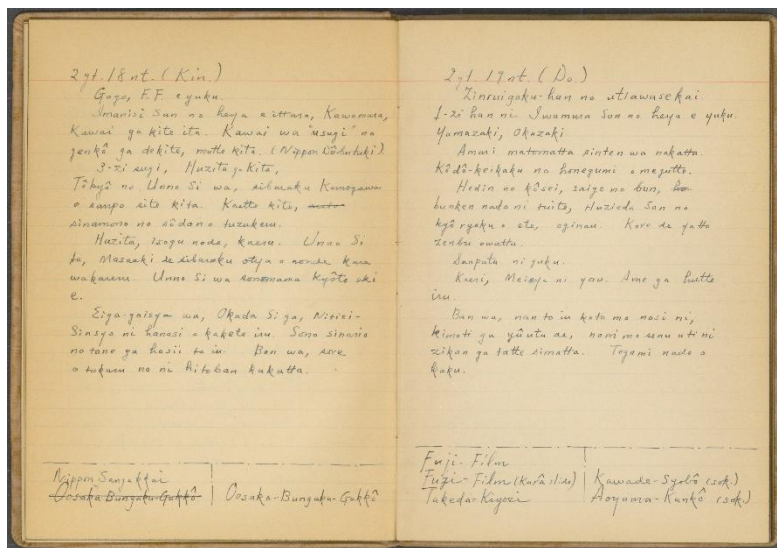 2 gt. 18 nt. (Kin.)
Gogo, F.F. e yuku.
Imanisi San no heya e ittara, Kawamura,
Kawai ga kite ita. Kawai wa "usugi" no
genkô ga dekite, motte kita. (Nippon
3-zi sugi, Huzita ga kita,
Tôkyô no Unno Si wa, sibaraku Kamogawa
o sanpo site kita. Kaette kite,
sinamono no sôdan o tuzukeru.
Huzita, isogu node, kaeru. Unno Si
to, Masaki de sibaraku otya o nonde kara
wakareru. Unno Si wa sonomama Kyôto eki
e.
Eiga-gaisya wa, Okada Si ga, Nitiei-
Sinsya ni hanasi o kakete iru. Sono sinario
no tane ga hosii to iu. Ban wa, sore
o tukuru no ni hitoban kakatta.
Nippon Sangakkai
Oosaka Bungaku-Gakkô
Oosaka-Bungaku-Gakkô
2 gt 19 nt. (Do.)
Zinruigaku-han no utiawasekai.
1-zi han ni Iwamura San no heya e yuku.
Yamazaki, Okazaki
Amari matomatta sinten wa nakatta.
Kôdô-keikaku no honegumi o megutte.
Hedin no kôsei, saigo no bun,
bunken nado ni tuite, Huzieda San no
kyôryoku o ete, oginau. Kore de yatto
zenbu owatta.
Sanpatu ni yuku.
Kaeri, Meigya ni yoru. Ame ga hutte
iru.
Ban wa, nan to iu koto mo nasi ni,
kimoti ga yûutu de, nani mo senu uti ni
zikan ga tatte simatta. Tegami nado o
kaku.
Fuji-Film
Fuji-Film (Karâ slide)
Takeda-Kyozi
Kawade-Syobô (sok.)
Aoyama-Kankô (sok.)